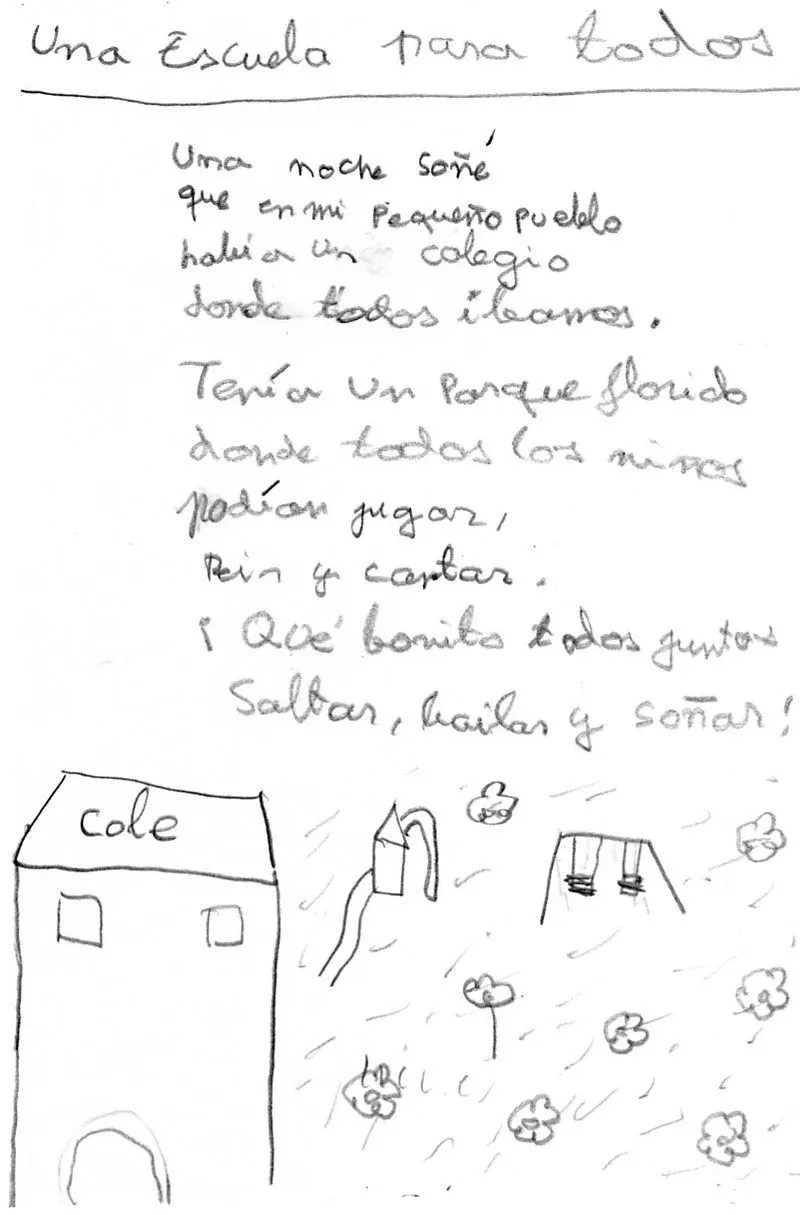 Una Escuela para todos
Una noche soñé
que en mi pequeño pueblo
había un colegio
donde todos íbamos.
Tenía un parque florido
donde todos los niños
podían jugar,
Reir y cantar.
¡Qué bonito todos juntos
Saltar, bailar y soñar!
cole